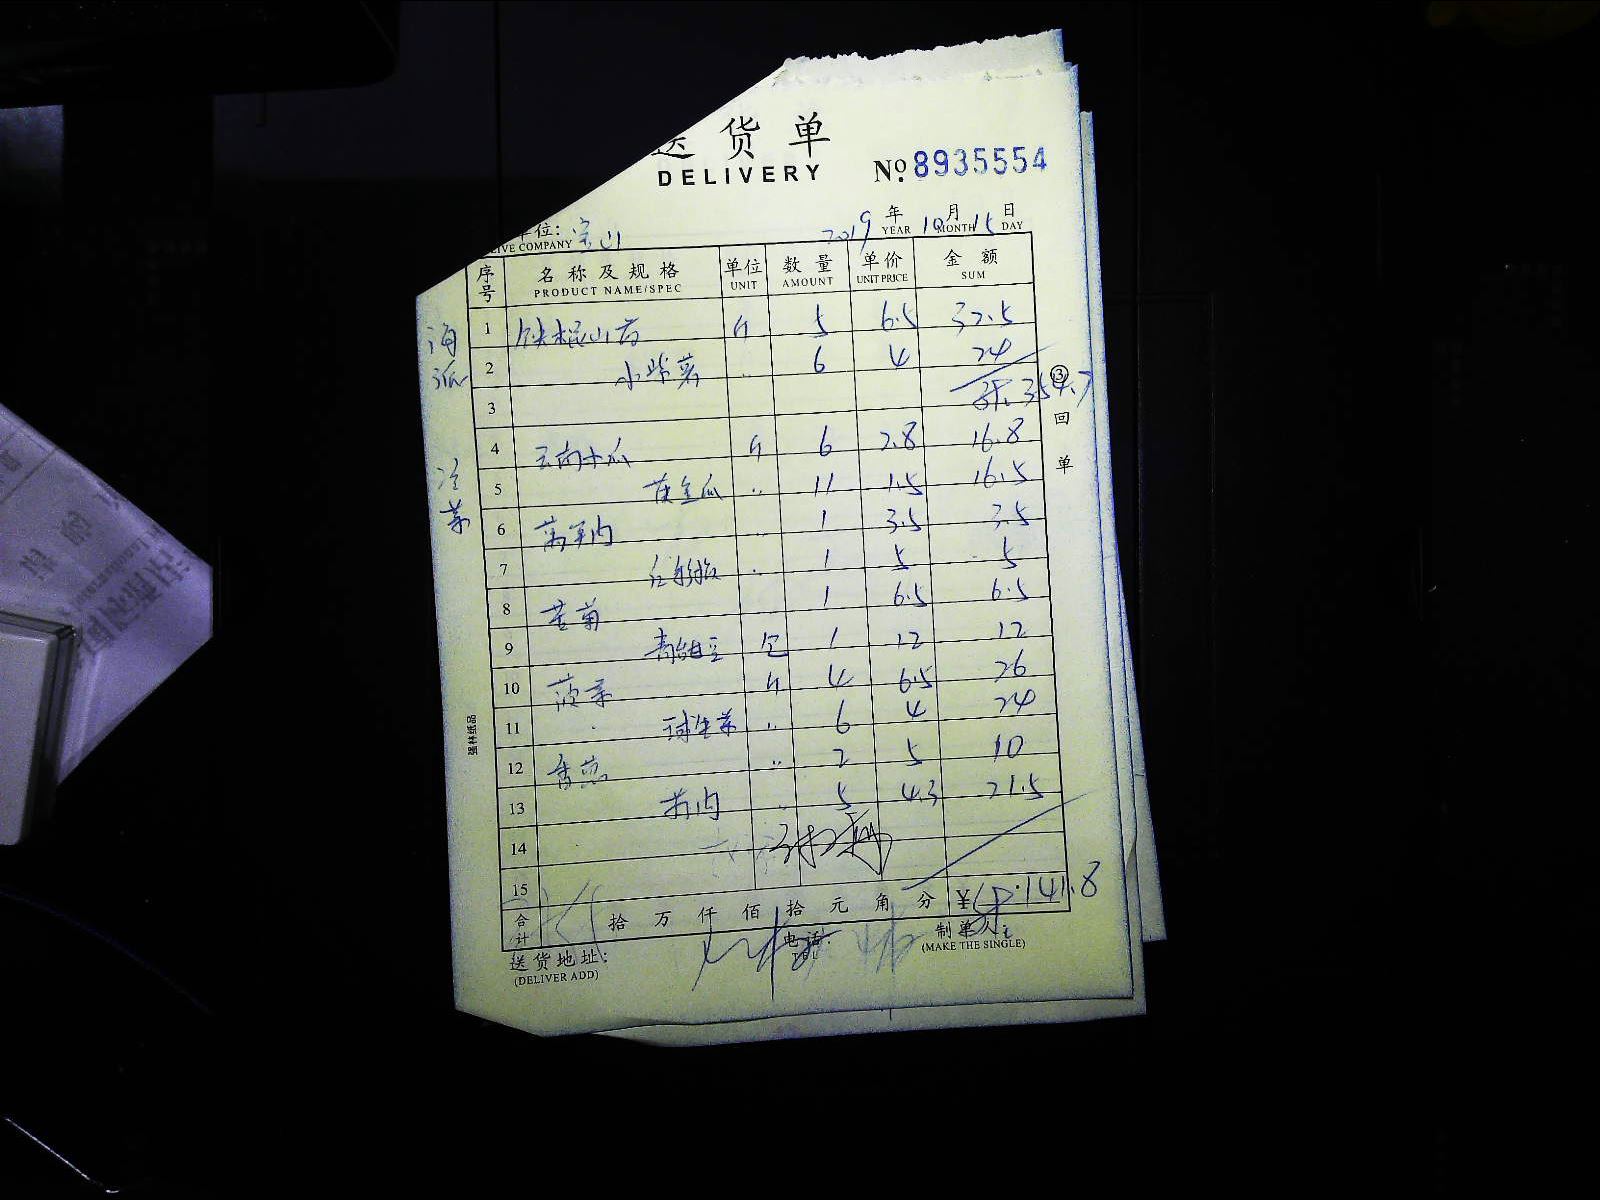 送货单
DELIVERY
№ 8935554
单位: 宝山 2019年10月15日
LIVE COMPANY YEAR MONTH DAY
序号 名称及规格 单位 数量 单价 金额
PRODUCT NAME/SPEC UNIT AMOUNT UNIT PRICE SUM
1 铁棍山药 斤 5 6.5 32.5
2 小紫薯 〃 6 4 24
3 354.7
4 云南木瓜 斤 6 2.8 16.8
5 黄金瓜 〃 11 1.5 16.5
6 1 3.5 3.5
7 1 5 5
8 苦菊 1 6.5 6.5
9 包 1 12 12
10 菠菜 斤 4 6.5 26
11 球生菜 〃 6 4 24
12 香葱 〃 2 5 10
13 〃 5 4.3 21.5
14
15
合计 拾 万 仟 佰 拾 元 角 分 ¥ 141.8
送货地址: 电话: 制单人:
(DELIVER ADD) TEL (MAKE THE SINGLE)
③回单
强林纸品
冷菜